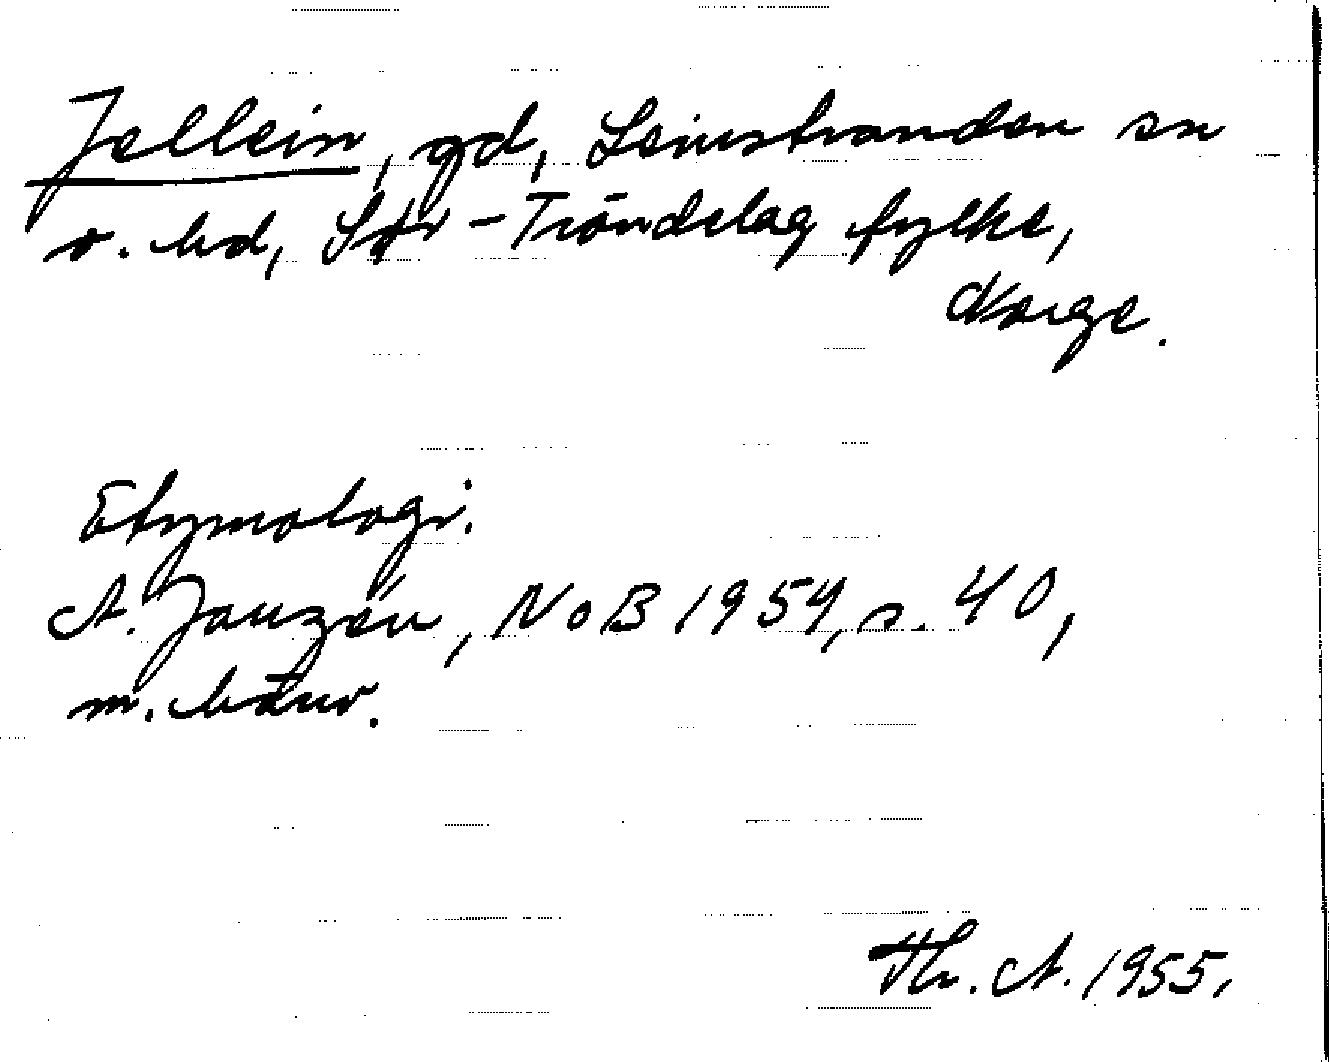 Jellein, gd, Leinstranden sn
o. hd, Sør-Tröndelag fylke,
Norge.
Etymologi.
A. Janzén, NoB 1954, s. 40,
m. hänv.
Th. A. 1955.